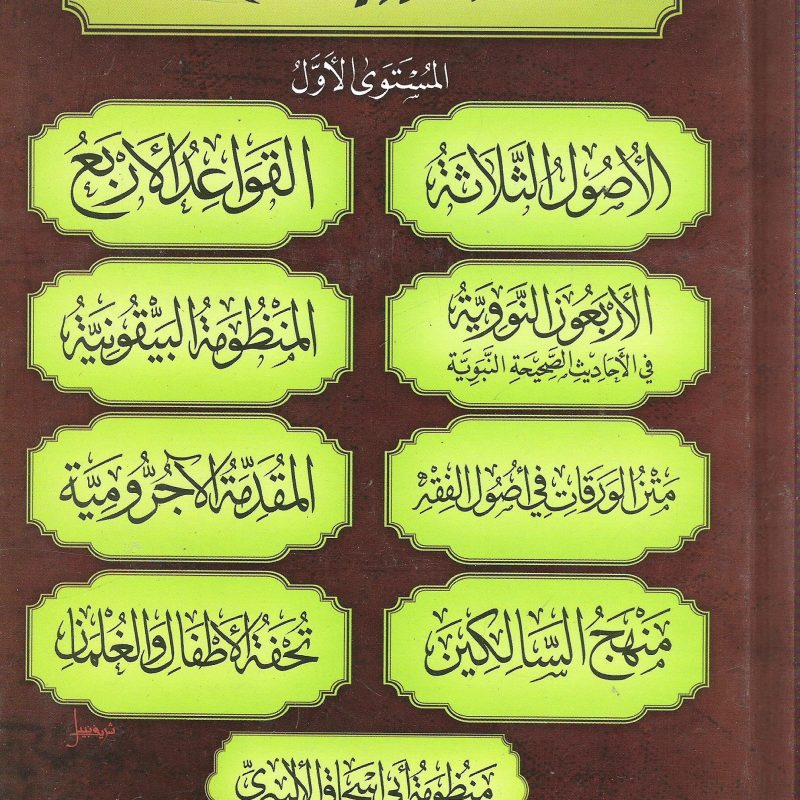 المُسْتَوَى الأَوَّلُ
الأُصُولُ الثَّلَاثَةُ
القَوَاعِدُ الأَرْبَعُ
الأَرْبَعُونَ النَّوَوِيَّةُ
فِي الأَحَادِيثِ الصَّحِيحَةِ النَّبَوِيَّةِ
المَنْظُومَةُ البَيْقُونِيَّةُ
مَتْنُ الوَرَقَاتِ فِي أُصُولِ الفِقْهِ
المُقَدِّمَةُ الآجُرُّومِيَّةُ
مَنْهَجُ السَّالِكِينَ
تُحْفَةُ الأَطْفَالِ وَالغُلْمَانِ
شريف نبيل
مَنْظُومَةُ أَبِي إِسْحَاقَ الأَلْبِيرِيِّ